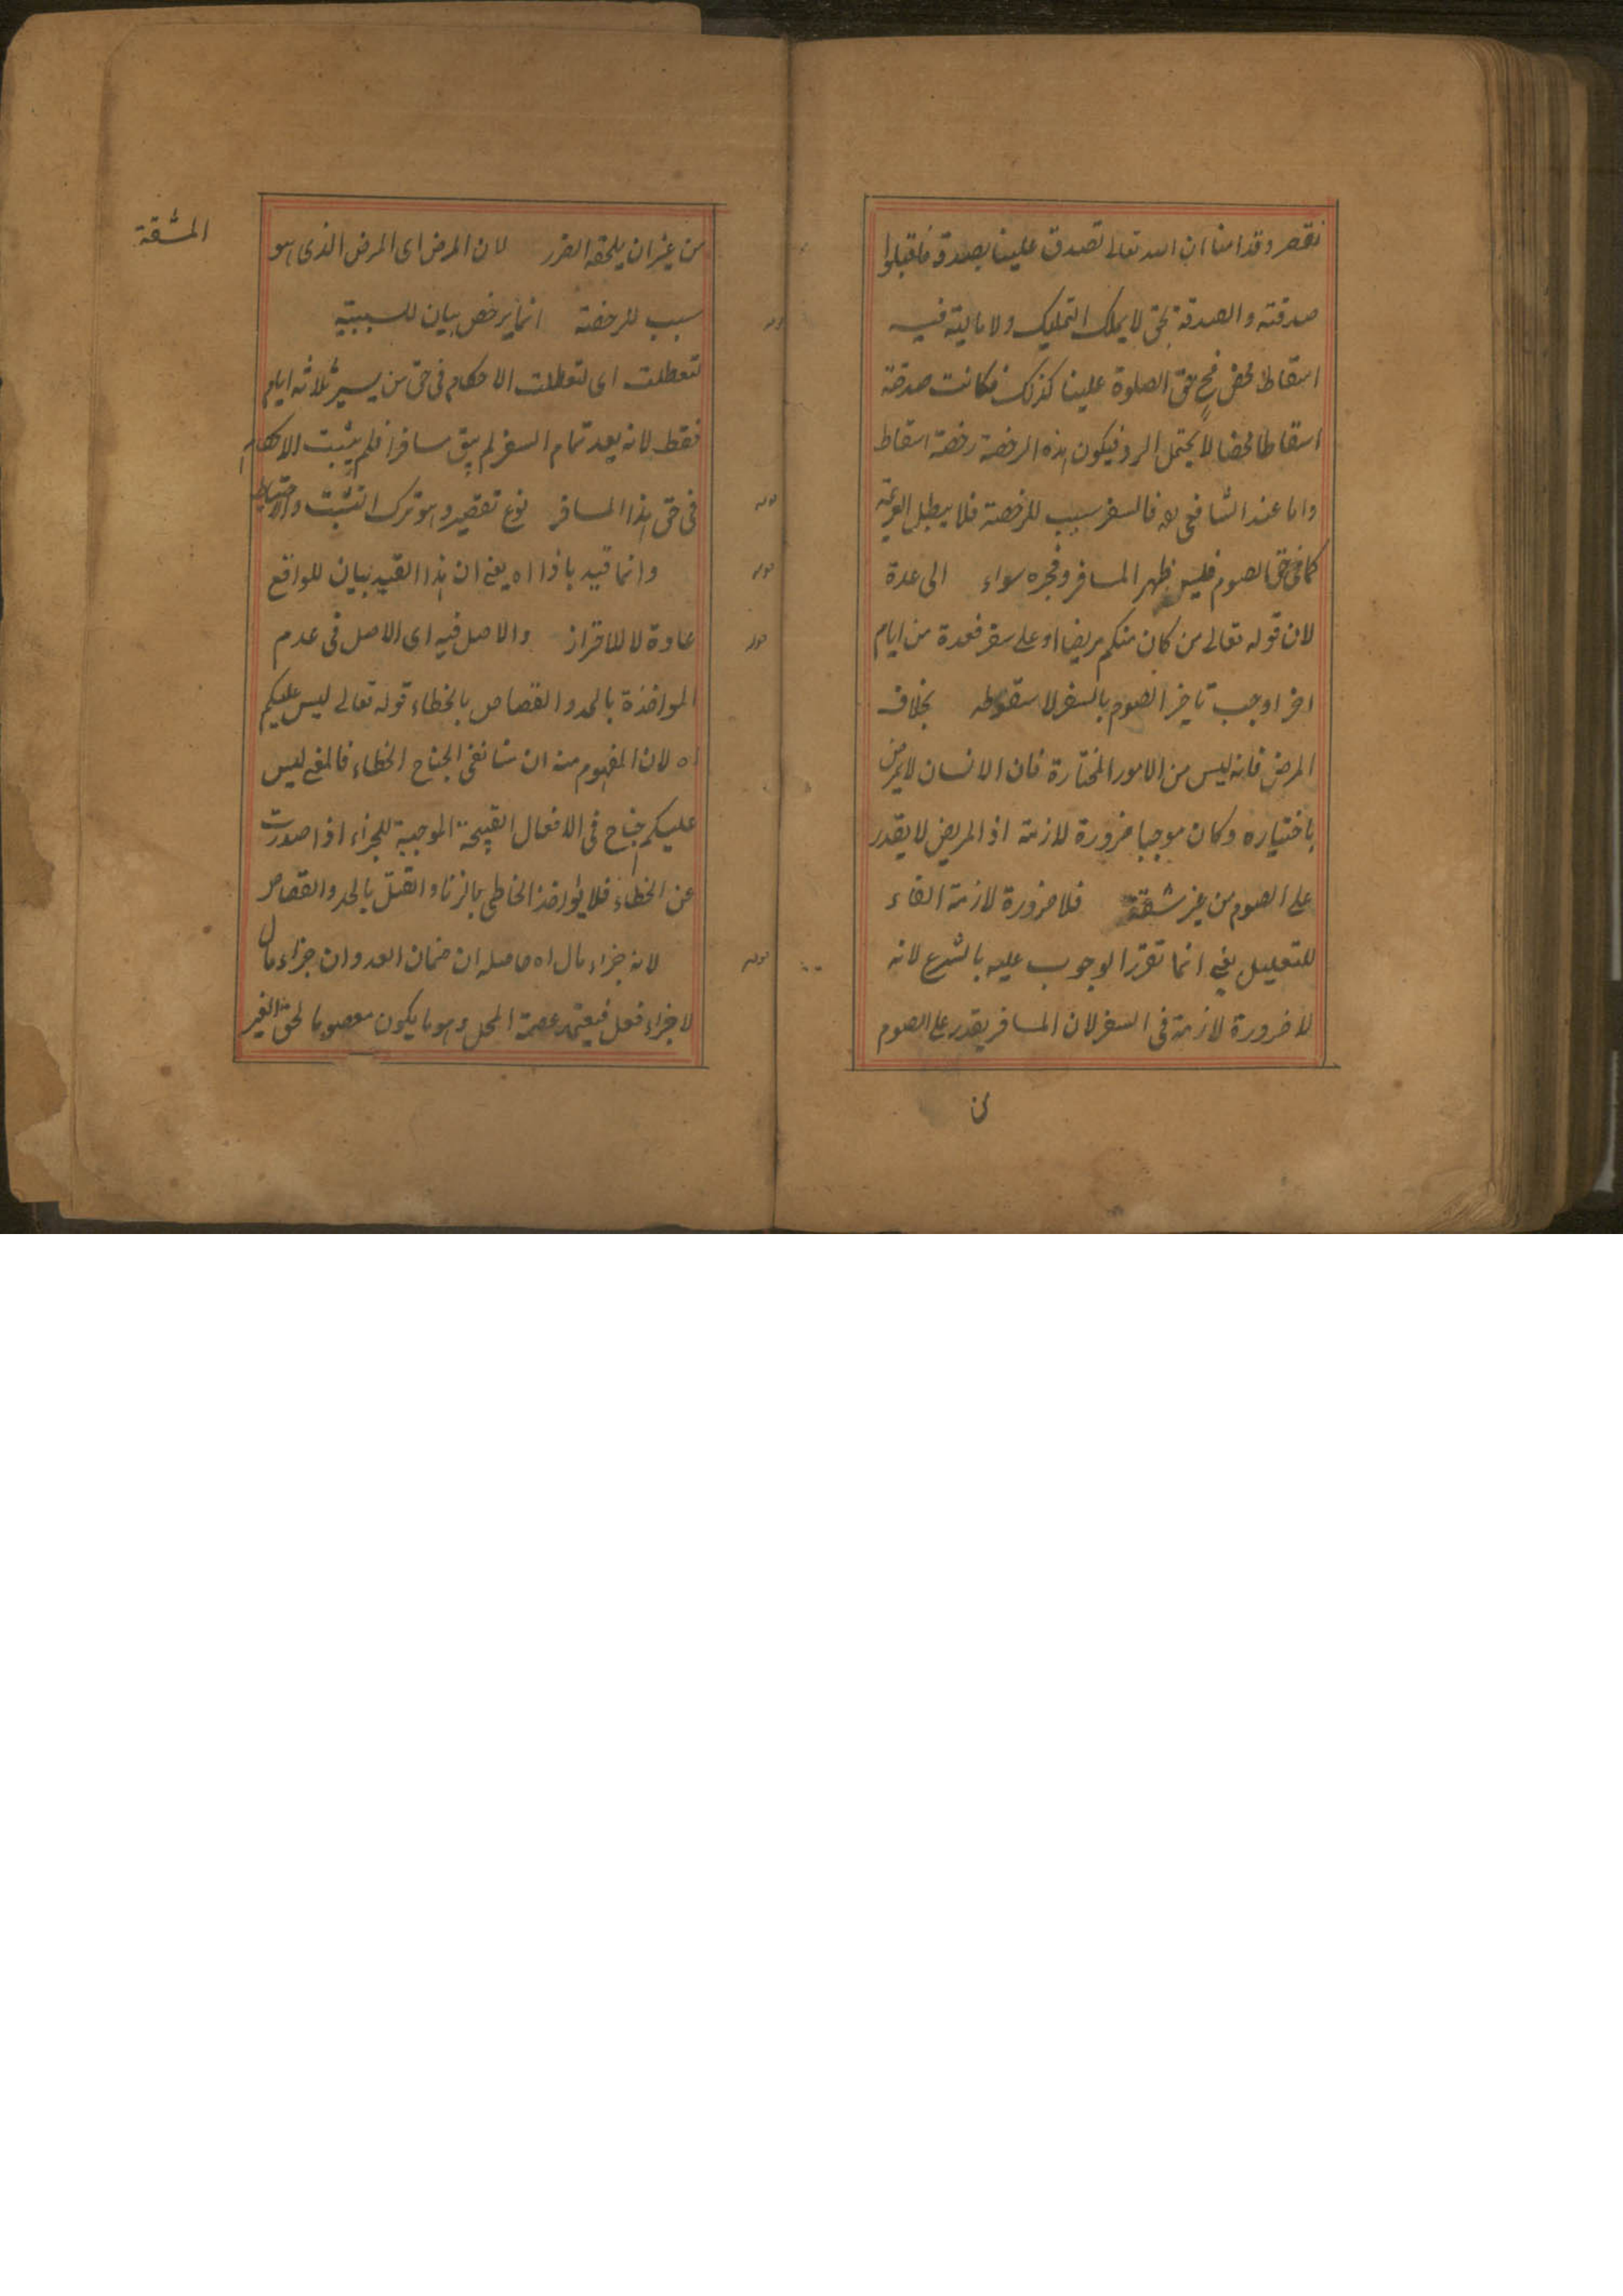 نقصر وقد امنا ان الله تعالى تصدق علينا بصدقة فاقبلوا
صدقته والصدقة بحق لا يملك التمليك ولا مالية فيه
اسقاط محض فح حق الصلوة علينا كذلك فكانت صدقة
اسقاطا محضا لا يحتمل الرد فيكون هذه الرخصة رخصة اسقاط
واما عند الشافعي رح فالسفر سبب للرخصة فلا يبطل العزيمة
كما في حق الصوم فليس ظهر المسافر وفجره سواء الى عدة
لان قوله تعالى من كان منكم مريضا او على سفر فعدة من ايام
اخر اوجب تاخير الصوم بالسفر لا سقوطه بخلاف
المرض فانه ليس من الامور المختارة فان الانسان لا يمرض
باختياره وكان موجبا ضرورة لازمة اذ المريض لا يقدر
على الصوم من غير مشقة فلا ضرورة لازمة الفاء
للتعليل يعني انما تقرر الوجوب عليه بالشرع لانه
لا ضرورة لازمة في السفر لان المسافر يقدر على الصوم
المشقة
من غير ان يلحقه الضرر لان المرض اى المرض الذى هو
سبب للرخصة انما يرخص بيان للسببية
لتعطلت اى لتعطلت الاحكام فى حق من يسير ثلاثة ايام
فقط لانه بعد تمام السفر لم يبق مسافرا فلم يثبت الاحكام
فى حق هذا المسافر نوع تقصير وهو ترك التثبت والاحتياط
قوله
وانما قيد باذا اه يعنى ان هذا القيد بيان للواقع
قوله
عادة لا للاقرار والاصل فيه اى الاصل فى عدم
قوله
المواخذة بالحد والقصاص بالخطاء قوله تعالى ليس عليكم
اه لان المفهوم منه ان شانفى الجناح الخطاء فالمعنى ليس
عليكم جناح فى الافعال القبيحة الموجبة للجزاء اذا صدرت
عن الخطاء فلا يؤاخذ الخاطى بالزنا والقتل بالحد والقصاص
لانه جزاء مال اه حاصله ان ضمان العدوان جزاء مال
قوله
لا جزاء فعل فيعتمد عصمة المحل وهو ما يكون معصوما لحق الغير